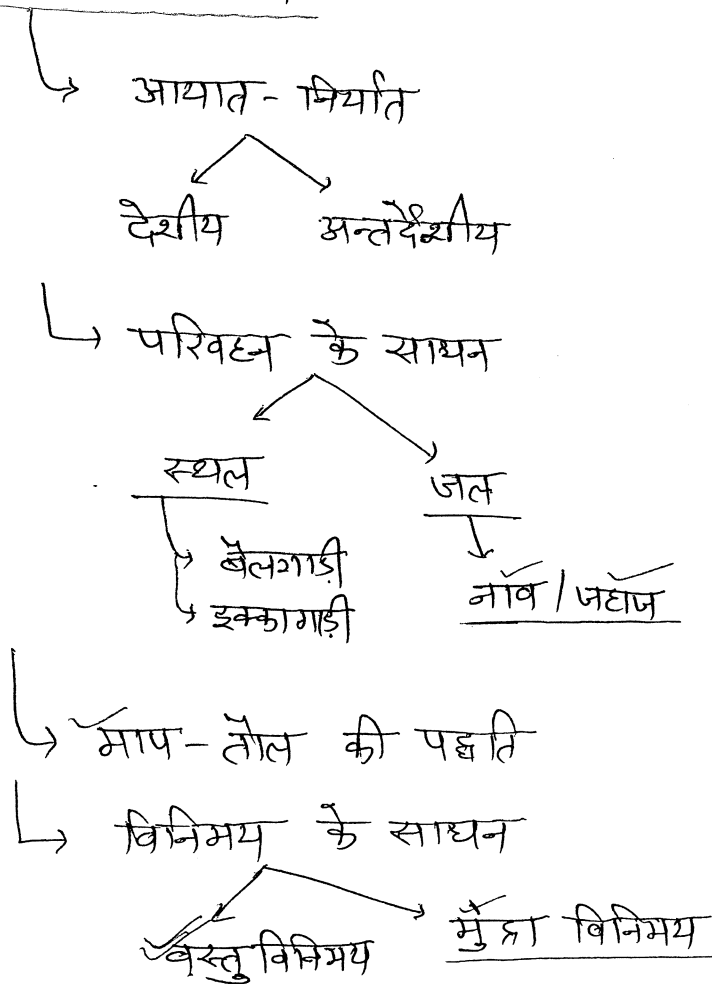 आयात - निर्यात
देशीय अन्तर्देशीय
परिवहन के साधन
स्थल जल
बैलगाड़ी
नाव / जहाज
इक्कागाड़ी
माप - तौल की पद्धति
विनिमय के साधन
वस्तु विनिमय मुद्रा विनिमय